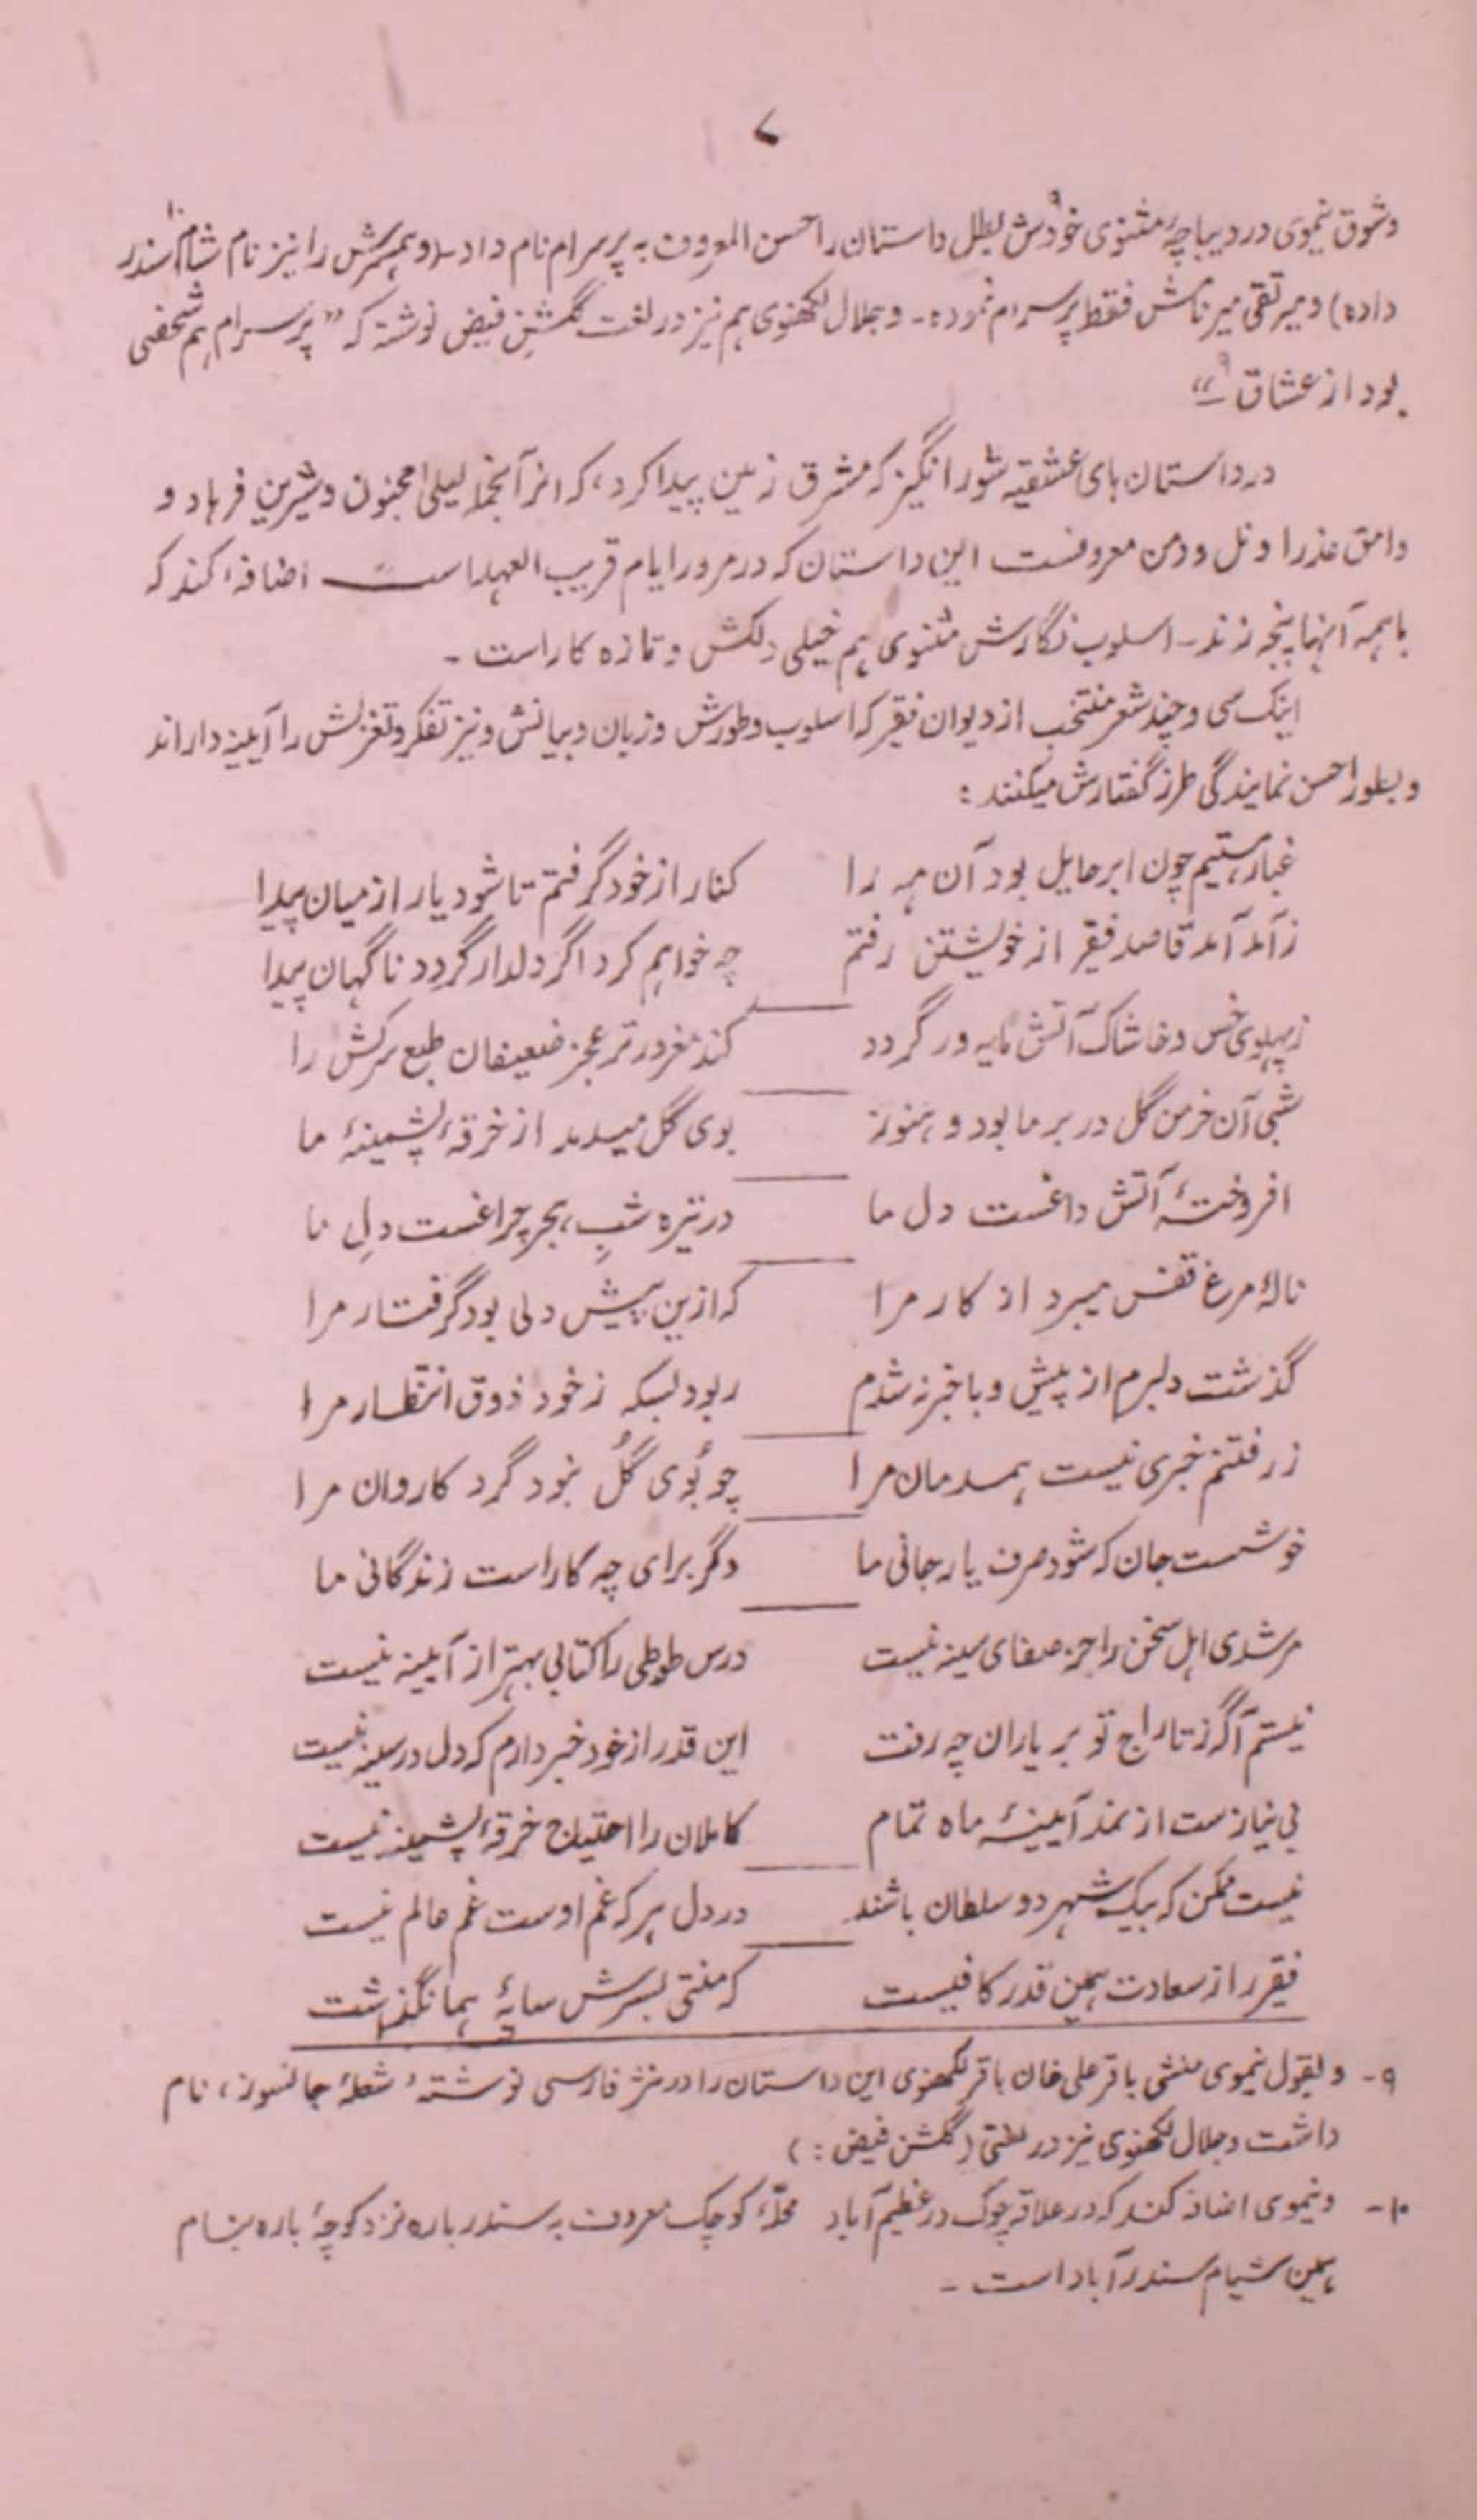 ۷
وشوق نیموی در دیباچهٔ مثنوی خودش۹ بطل داستان را حسن المعروف به پرسرام نام داد ـ (و همسرش را نیز نام شام۱۰ سندر
داده) و میر تقی میر نامش فقط پرسرام نموده ـ و جلال لکھنوی هم نیز در لغت گلشنِ فیض نوشته که ”پرسرام هم شخصی
بود از عشاق۹ ـ“
در داستان های عشقیه شورانگیز که مشرق زمین پیدا کرد، که از آنجمله لیلیٰ مجنون و شیرین فرهاد و
وامق عذرا و نل و دمن معروفست این داستان که در مرور ایام قریب العهد است اضافه کند که
با همه آنها پنجه زند ـ اسلوب نگارش مثنوی هم خیلی دلکش و تازه کار است ـ
اینک سی و چند شعر منتخب از دیوان فقیر که اسلوب و طورش و زبان و بیانش و نیز تفکر و تغزلش را آیینه داراند
و بطور احسن نمایندگی طرز گفتارش میکنند :
غبار هستیم چون ابر حایل بود آن مه را کنار از خود گرفتم تا شود یار از میان پیدا
ز آمد آمد قاصد فقیر از خویشتن رفتم چه خواهم کرد اگر دلدار گردد ناگهان پیدا
ز پهلوی خس و خاشاک آتش مایه ور گردد کند مغرورتر عجز ضعیفان طبع سرکش را
شبی آن خرمن گل در بر ما بود و هنوز بوی گل میدمد از خرقهٔ پشمینهٔ ما
افروختهٔ آتش داغست دل ما در تیره شبِ هجر چراغست دلِ ما
نالهٔ مرغ قفس میبرد از کار مرا که ازین پیش دلی بود گرفتار مرا
گذشت دلبرم از پیش و باخبر نشدم ربود بسکه ز خود ذوق انتظار مرا
ز رفتنم خبری نیست همدمان مرا چو بُوی گُل نبود گرد کاروان مرا
خوشست جان که شود صرف یار جانی ما دگر برای چه کار است زندگانی ما
مرشدی اهل سخن را جز صفای سینه نیست درس طوطی را کتابی بهتر از آیینه نیست
نیستم آگه ز تاراج تو بر یاران چه رفت این قدر از خود خبر دارم که دل در سینه نیست
بی نیاز ست از نمد آیینهٔ ماه تمام کاملان را احتیاج خرقهٔ پشمینه نیست
نیست ممکن که بیک شهر دو سلطان باشند در دل هر که غم اوست غم عالم نیست
فقیر را ز سعادت همین قدر کافیست که منتی بسرش سایهٔ هما نگذاشت
۹ ـ و بقول نیموی منشی باقر علی خان باقر لکھنوی این داستان را در نثر فارسی نوشته، شعلهٔ جانسوز، نام
داشت و جلال لکھنوی نیز در (گلشن فیض : )
۱۰ ـ و نیموی اضافه کند که در علاقه چوک در عظیم آباد محلهٔ کوچک معروف به سندر باره نزد کوچهٔ باره بنام
همین شیام سندر آباد است ـ